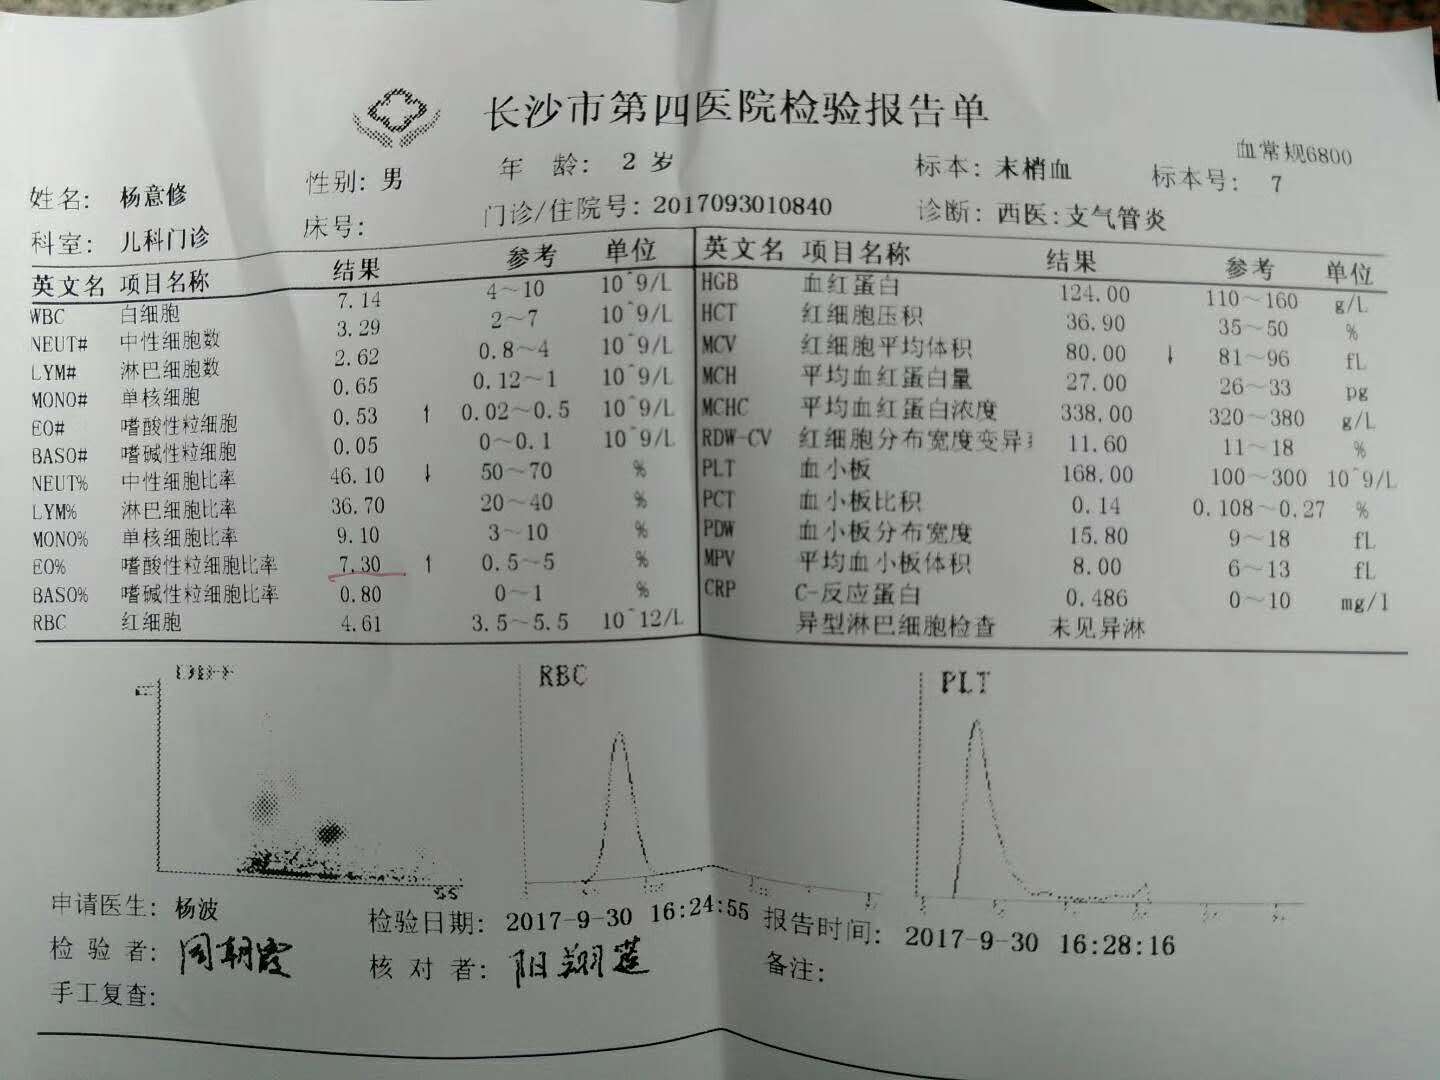 长沙市第四医院检验报告单
血常规6800
姓名: 杨意修 性别: 男 年 龄: 2 岁 标本: 末梢血 标本号: 7
科室: 儿科门诊 床号: 门诊/住院号: 2017093010840 诊断: 西医: 支气管炎
英文名 项目名称 结果 参考 单位 英文名 项目名称 结果 参考 单位
WBC 白细胞 7.14 4~10 10^9/L HGB 血红蛋白 124.00 110~160 g/L
NEUT# 中性细胞数 3.29 2~7 10^9/L HCT 红细胞压积 36.90 35~50 %
LYM# 淋巴细胞数 2.62 0.8~4 10^9/L MCV 红细胞平均体积 80.00 ↓ 81~96 fL
MONO# 单核细胞 0.65 0.12~1 10^9/L MCH 平均血红蛋白量 27.00 26~33 pg
EO# 嗜酸性粒细胞 0.53 ↑ 0.02~0.5 10^9/L MCHC 平均血红蛋白浓度 338.00 320~380 g/L
BASO# 嗜碱性粒细胞 0.05 0~0.1 10^9/L RDW-CV 红细胞分布宽度变异 11.60 11~18 %
NEUT% 中性细胞比率 46.10 ↓ 50~70 % PLT 血小板 168.00 100~300 10^9/L
LYM% 淋巴细胞比率 36.70 20~40 % PCT 血小板比积 0.14 0.108~0.27 %
MONO% 单核细胞比率 9.10 3~10 % PDW 血小板分布宽度 15.80 9~18 fL
EO% 嗜酸性粒细胞比率 7.30 ↑ 0.5~5 % MPV 平均血小板体积 8.00 6~13 fL
BASO% 嗜碱性粒细胞比率 0.80 0~1 % CRP C-反应蛋白 0.486 0~10 mg/l
RBC 红细胞 4.61 3.5~5.5 10^12/L 异型淋巴细胞检查 未见异淋
RBC PLT
申请医生: 杨波 检验日期: 2017-9-30 16:24:55 报告时间: 2017-9-30 16:28:16
检 验 者: 周朝霞 核 对 者: 阳翔莲 备注:
手工复查: